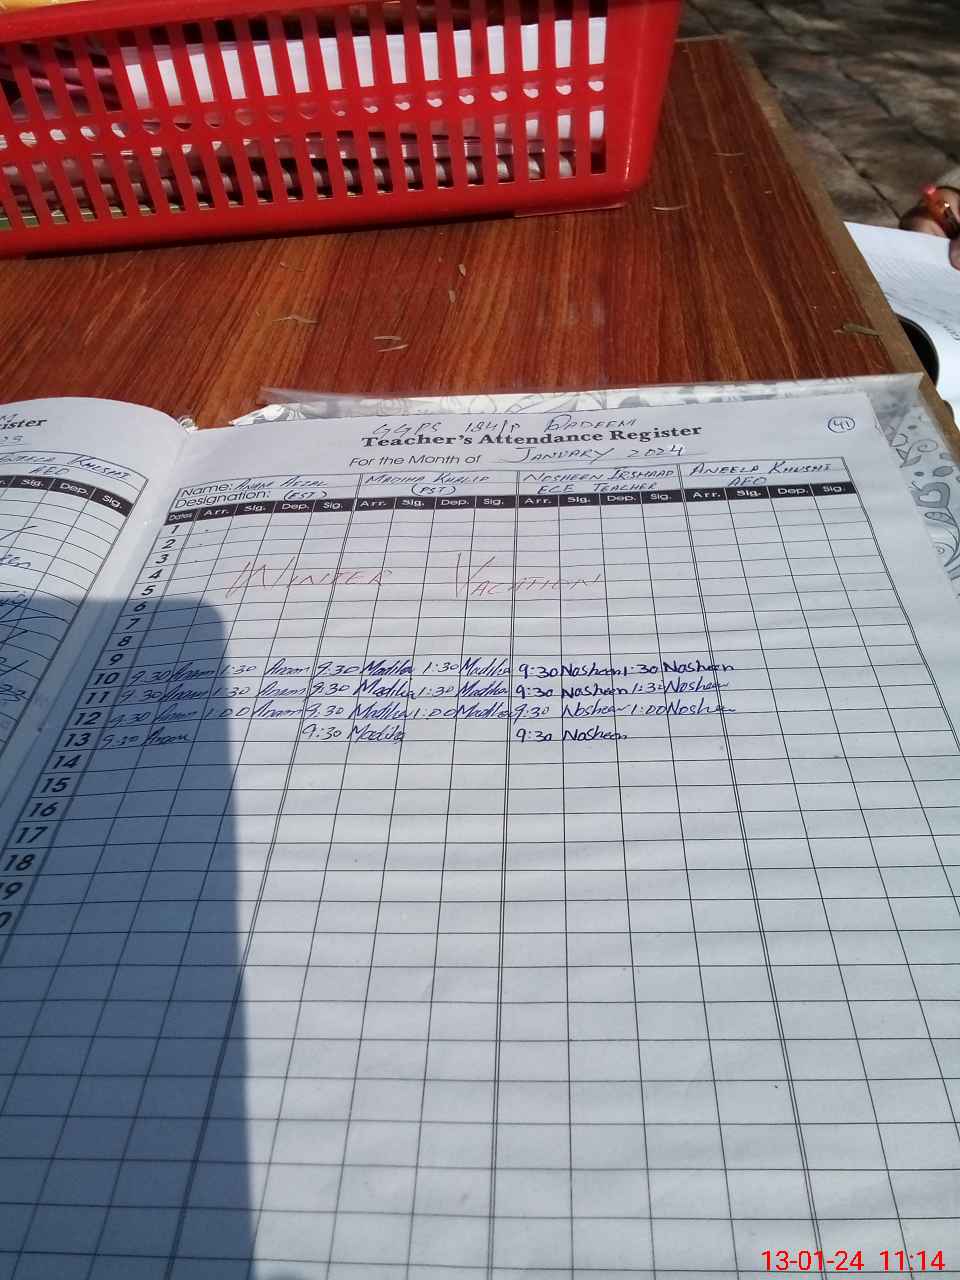 ister
KHUSHI
AEO
Sig. Dep. Sig.
GGPS 184/P QADEEM
41
Teacher's Attendance Register
For the Month of JANUARY 2024
Name: ANAM MADIHA KHALID NOSHEEN IRSHAAD ANEELA KHUSHI
Designation: (EST) (PST) ECE TEACHER AEO
Dates Arr. Sig. Dep. Sig. Arr. Sig. Dep. Sig. Arr. Sig. Dep. Sig. Arr. Sig. Dep. Sig.
1
2
3
4
WINTER VACATION
5
6
7
8
9
10 9:30 Anam 1:30 Anam 9:30 Madiha 1:30 Madiha 9:30 Nosheen 1:30 Nosheen
11 9:30 Anam 1:30 Anam 9:30 Madiha 1:30 Madiha 9:30 Nosheen 1:30 Nosheen
12 9:30 Anam 1:00 Anam 9:30 Madiha 1:00 Madiha 9:30 Nosheen 1:00 Nosheen
13 9:30 Anam 9:30 Madiha 9:30 Nosheen
14
15
16
17
18
9
0
13-01-24 11:14